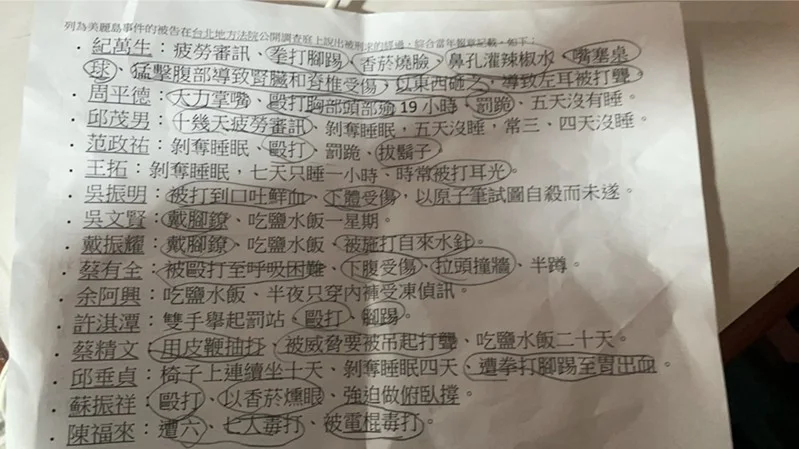 列為美麗島事件的被告在台北地方法院公開調查庭上說出被刑求的經過，綜合當年報章記載，如下：
· 紀萬生：疲勞審訊、拳打腳踢、香菸燒臉、鼻孔灌辣椒水、嘴塞桌
球、猛擊腹部導致腎臟和脊椎受傷、以東西砸之，導致左耳被打聾。
· 周平德：大力掌嘴、毆打胸部頭部逾19小時、罰跪、五天沒有睡。
· 邱茂男：十幾天疲勞審訊、剝奪睡眠，五天沒睡，常三、四天沒睡。
· 范政祐：剝奪睡眠、毆打、罰跪、拔鬍子
· 王拓：剝奪睡眠，七天只睡一小時、時常被打耳光。
· 吳振明：被打到口吐鮮血、下體受傷，以原子筆試圖自殺而未遂。
· 吳文賢：戴腳鐐、吃鹽水飯一星期。
· 戴振耀：戴腳鐐、吃鹽水飯、被施打自來水針。
· 蔡有全：被毆打至呼吸困難、下腹受傷、拉頭撞牆、半蹲。
· 余阿興：吃鹽水飯、半夜只穿內褲受凍偵訊。
· 許淇潭：雙手舉起罰站、毆打、腳踢。
· 蔡精文：用皮鞭抽打、被威脅要被吊起打聾、吃鹽水飯二十天。
· 邱垂貞：椅子上連續坐十天、剝奪睡眠四天、遭拳打腳踢至胃出血。
· 蘇振祥：毆打、以香菸燻眼、強迫做俯臥撐。
· 陳福來：遭六、七人毒打、被電棍毒打。